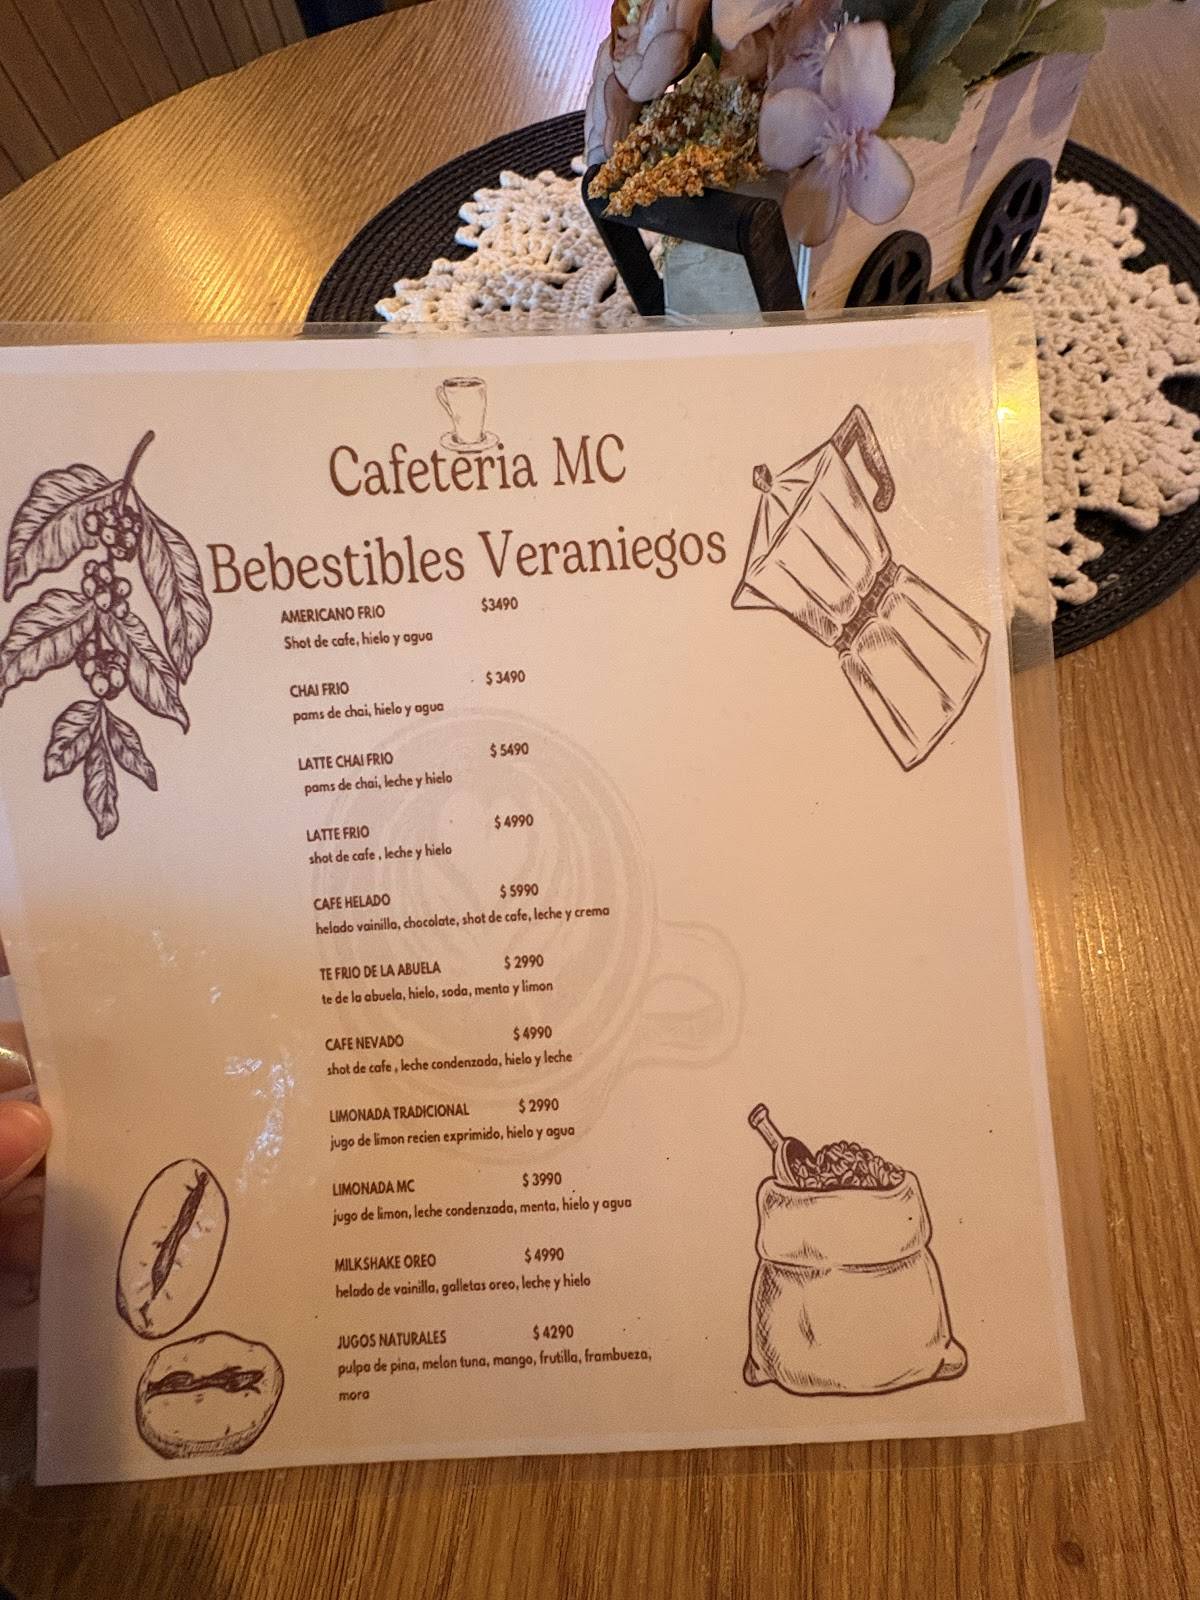 Cafeteria MC
Bebestibles Veraniegos
AMERICANO FRIO $3490
Shot de cafe, hielo y agua
CHAI FRIO $ 3490
pams de chai, hielo y agua
LATTE CHAI FRIO $ 5490
pams de chai, leche y hielo
LATTE FRIO $ 4990
shot de cafe , leche y hielo
CAFE HELADO $ 5990
helado vainilla, chocolate, shot de cafe, leche y crema
TE FRIO DE LA ABUELA $ 2990
te de la abuela, hielo, soda, menta y limon
CAFE NEVADO $ 4990
shot de cafe , leche condenzada, hielo y leche
LIMONADA TRADICIONAL $ 2990
jugo de limon recien exprimido, hielo y agua
LIMONADA MC $ 3990
jugo de limon, leche condenzada, menta, hielo y agua
MILKSHAKE OREO $ 4990
helado de vainilla, galletas oreo, leche y hielo
JUGOS NATURALES $ 4290
pulpa de pina, melon tuna, mango, frutilla, frambueza,
mora